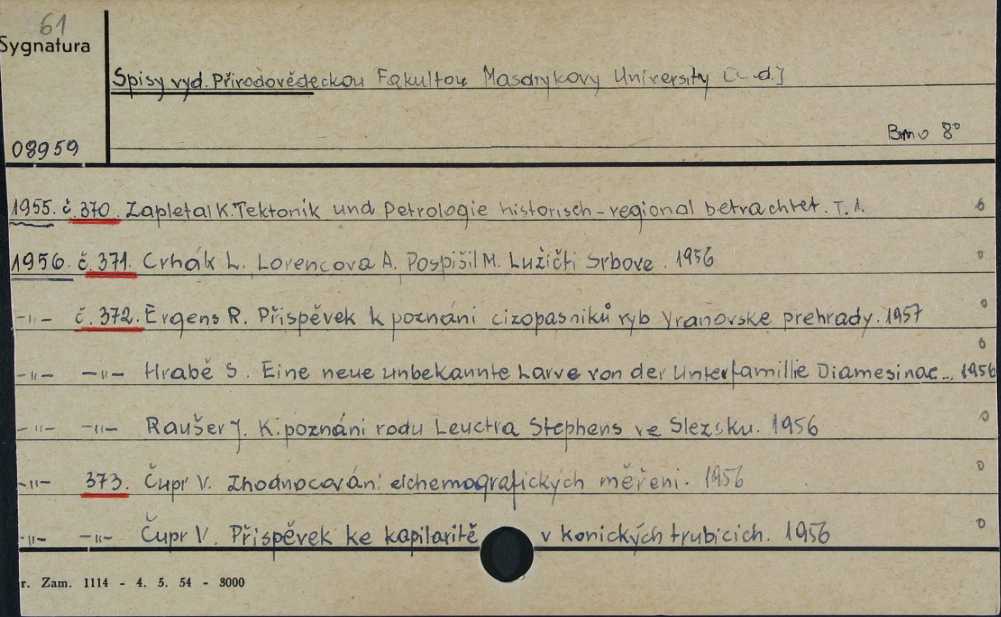 61
Sygnatura
Spisy vyd. Přírodovědeckou Fakultou Masarykovy University [c. d.]
Brno 8°
08959
1955. č. 370. Zapletal K. Tektonik und Petrologie historisch-regional betrachtet. T. 1. 6
1956. č. 371. Crhák L. Lorencova A. Pospíšil M. Lužičti Srbove. 1956 0
-"- č. 372. Ergens R. Přispěvek k poznáni cizopasniků ryb Vranovske prehrady. 1957 0
-"- -"- Hrabě S. Eine neue unbekannte Larve von der Unterfamillie Diamesinae... 1956 6
-"- -"- Raušer J. K. poznáni rodu Leuctra Stephens ve Slezsku. 1956 0
-"- 373. Čupr V. Zhodnocováni elchemografických měřeni. 1956 0
-"- -"- Čupr V. Přispěvek ke kapilaritě v konických trubicich. 1956 0
r. Zam. 1114 - 4. 5. 54 - 3000